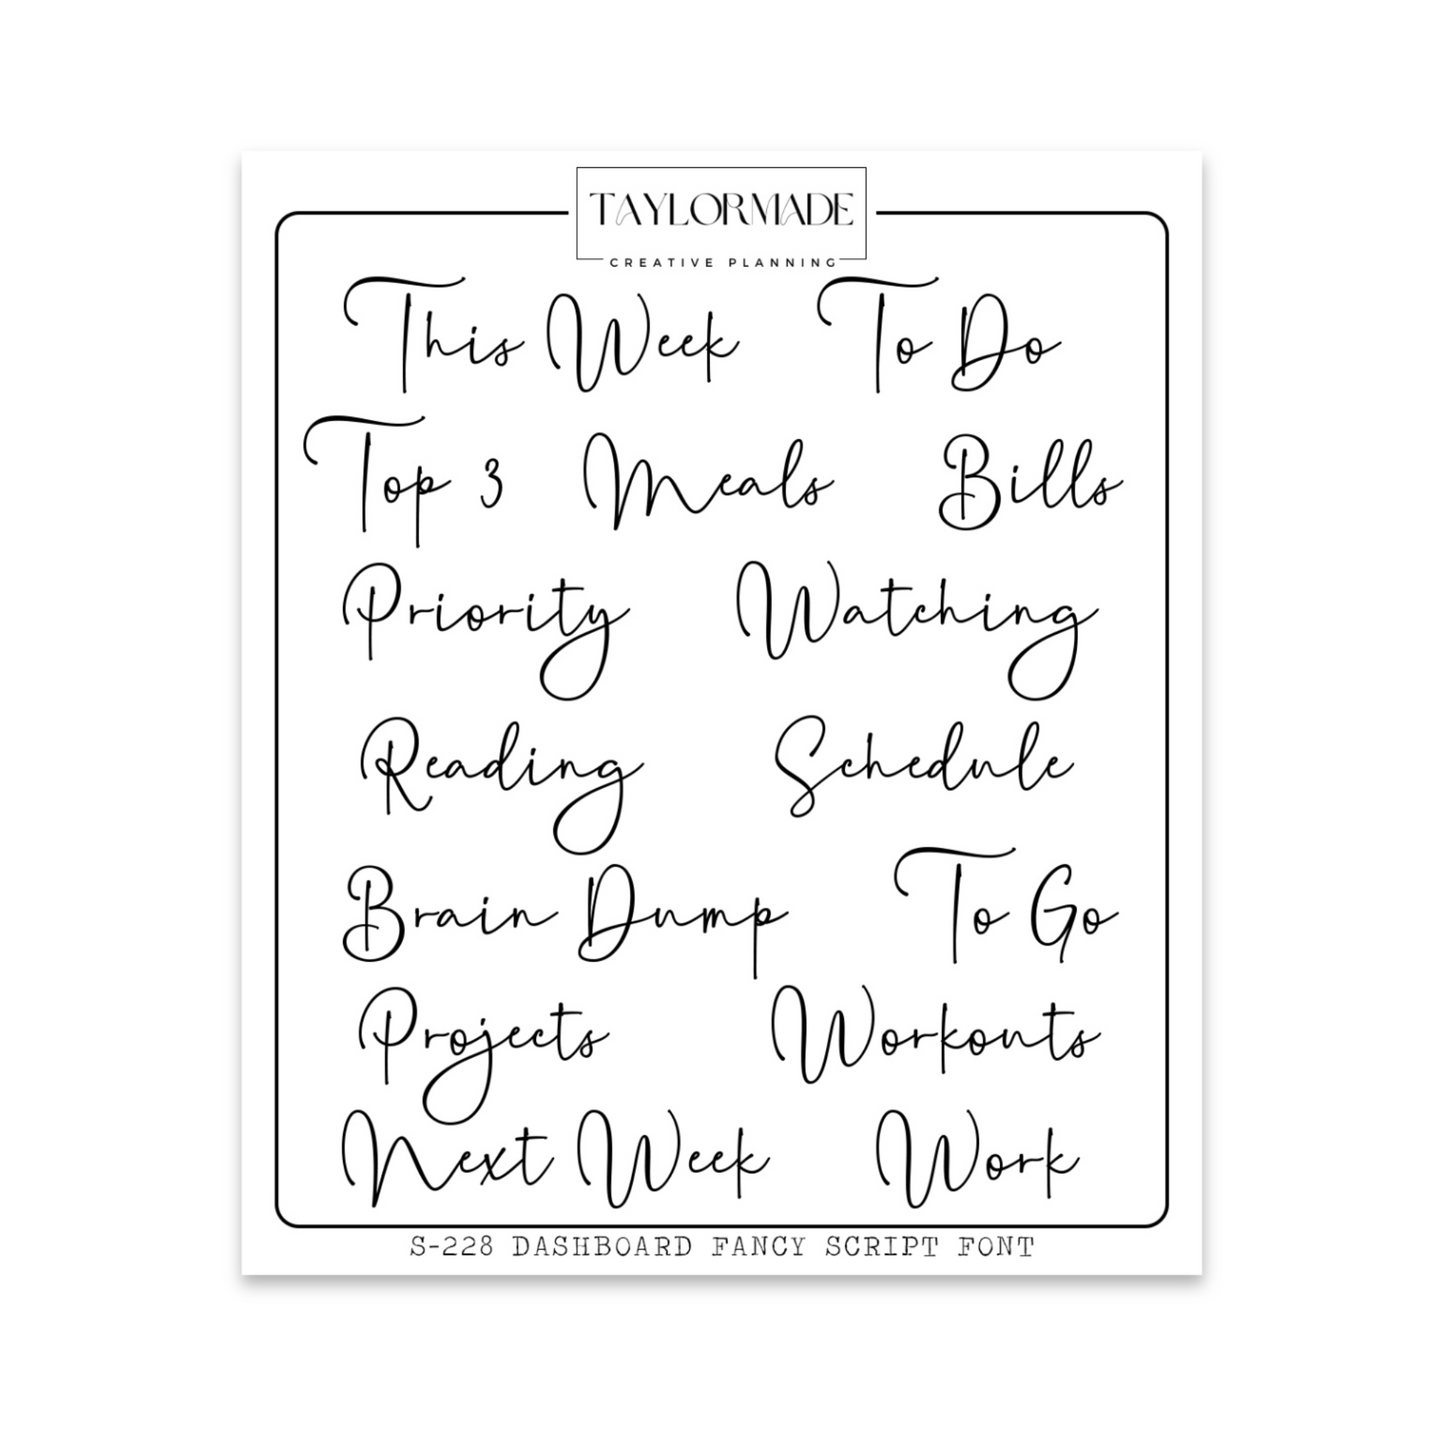 TAYLORMADE
CREATIVE PLANNING
This Week To Do
Top 3 Meals Bills
Priority Watching
Reading Schedule
Brain Dump To Go
Projects Workouts
Next Week Work
S-228 DASHBOARD FANCY SCRIPT FONT